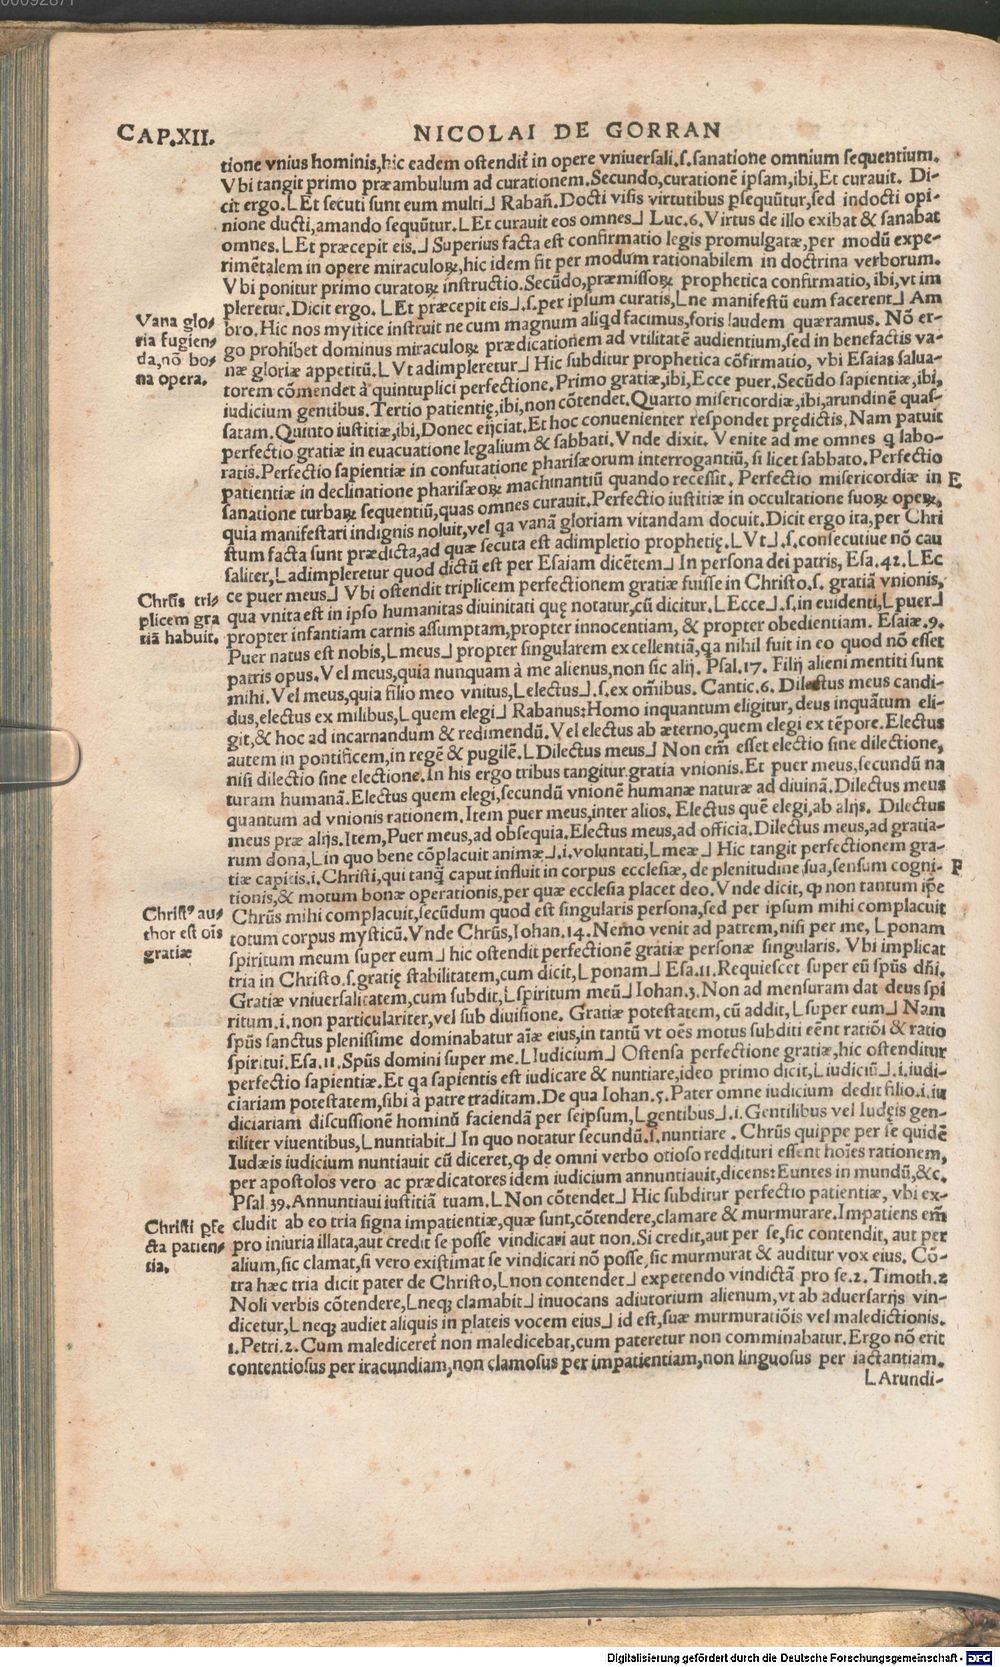 CAP.XII.
NICOLAI DE GORRAN
tione vnius hominis,hic eadem ostendit̃ in opere vniuersali.ſ.sanatione omnium sequentium.
Vbi tangit primo præambulum ad curationem.Secundo,curationē ipsam,ibi,Et curauit. Di-
cit ergo.⌊Et secuti sunt eum multi⌋ Rabañ.Docti visis virtutibus ꝑsequũtur,sed indocti opi-
nione ducti,amando sequũtur.⌊Et curauit eos omnes⌋ Luc.6.Virtus de illo exibat & sanabat
omnes.⌊Et præcepit eis.⌋ Superius facta est confirmatio legis promulgatæ,per modũ expe-
rimētalem in opere miraculoꝝ,hic idem fit per modum rationabilem in doctrina verborum.
Vbi ponitur primo curatoꝝ instructio.Secũdo,præmissoꝝ prophetica confirmatio,ibi,vt im
pleretur.Dicit ergo. ⌊Et præcepit eis⌋.ſ.per ipsum curatis,⌊ne manifestũ eum facerent⌋ Am
bro.Hic nos mystice instruit ne cum magnum aliqd facimus,foris laudem quæramus. Nō er-
go prohibet dominus miraculoꝝ prædicationem ad vtilitatē audientium,sed in benefactis va-
næ gloriæ appetitũ.⌊Vt adimpleretur⌋ Hic subditur prophetica cōfirmatio, vbi Esaias salua-
torem cōmendet à quintuplici perfectione.Primo gratiæ,ibi,Ecce puer.Secũdo sapientiæ,ibi,
iudicium gentibus.Tertio patientię,ibi,non cōtendet.Quarto misericordiæ,ibi,arundinē quas-
satam.Quinto iustitiæ,ibi,Donec eijciat.Et hoc conuenienter respondet prędictis.Nam patuit
perfectio gratiæ in euacuatione legalium & sabbati.Vnde dixit. Venite ad me omnes q labo-
ratis.Perfectio sapientiæ in confutatione pharisæorum interrogantiũ, si licet sabbato.Perfectio
patientiæ in declinatione pharisæoꝝ machinantiũ quando recessit. Perfectio misericordiæ in
sanatione turbaꝝ sequentiũ,quas omnes curauit.Perfectio iustitiæ in occultatione suoꝝ opeꝝ,
quia manifestari indignis noluit,vel qa vanā gloriam vitandam docuit.Dicit ergo ita,per Chri
stum facta sunt prædicta,ad quæ secuta est adimpletio prophetię.⌊Vt⌋.ſ.consecutiue nō cau
saliter,⌊adimpleretur quod dictũ est per Esaiam dicētem⌋ In persona dei patris, Esa.42.⌊Ec
ce puer meus⌋ Vbi ostendit triplicem perfectionem gratiæ fuisse in Christo.ſ. gratiā vnionis,
qua vnita est in ipso humanitas diuinitati quę notatur,cũ dicitur.⌊Ecce⌋.ſ.in euidenti,⌊puer⌋
propter infantiam carnis assumptam,propter innocentiam, & propter obedientiam. Esaiæ.9.
Puer natus est nobis,⌊meus⌋ propter singularem excellentiā,qa nihil fuit in eo quod nō esset
patris opus.Vel meus,quia nunquam à me alienus,non sic alij. Psal.17. Filij alieni mentiti sunt
mihi.Vel meus,quia filio meo vnitus,⌊electus⌋.ſ.ex om̃ibus. Cantic.6. Dilectus meus candi-
dus,electus ex milibus,⌊quem elegi⌋ Rabanus:Homo inquantum eligitur,deus inquātum eli-
git,& hoc ad incarnandum & redimendũ.Vel electus ab æterno,quem elegi ex tēpore.Electus
autem in pontificem,in regē & pugilē.⌊Dilectus meus⌋ Non em̃ esset electio sine dilectione,
nisi dilectio sine electione.In his ergo tribus tangitur gratia vnionis.Et puer meus,secundũ na
turam humanā.Electus quem elegi,secundũ vnionē humanæ naturæ ad diuinā.Dilectus meus
quantum ad vnionis rationem.Item puer meus,inter alios. Electus quē elegi,ab alijs. Dilectus
meus præ alijs.Item,Puer meus,ad obsequia.Electus meus,ad officia.Dilectus meus,ad gratia-
rum dona,⌊in quo bene cōplacuit animæ⌋.i.voluntati,⌊meæ⌋ Hic tangit perfectionem gra-
tiæ capitis.i.Christi,qui tanq̃ caput influit in corpus ecclesiæ, de plenitudine sua,sensum cogni-
tionis,& motum bonæ operationis,per quæ ecclesia placet deo.Vnde dicit, ꝙ non tantum ip̃e
Chrũs mihi complacuit,secũdum quod est singularis persona,sed per ipsum mihi complacuit
totum corpus mysticũ.Vnde Chrũs,Iohan.14.Nemo venit ad patrem,nisi per me, ⌊ponam
spiritum meum super eum⌋ hic ostendit perfectionē gratiæ personæ singularis. Vbi implicat
tria in Christo.ſ.gratię stabilitatem,cum dicit,⌊ponam⌋ Esa.11.Requiescet super eũ spũs dñi.
Gratiæ vniuersalitatem,cum subdit,⌊spiritum meũ⌋ Iohan.3.Non ad mensuram dat deus spi
ritum.i.non particulariter,vel sub diuisione. Gratiæ potestatem, cũ addit,⌊super eum⌋ Nam
spũs sanctus plenissime dominabatur aīæ eius,in tantũ vt oēs motus subditi eēnt ratiōi & ratio
spiritui.Esa.11.Spũs domini super me.⌊Iudicium⌋ Ostensa perfectione gratiæ,hic ostenditur
perfectio sapientiæ.Et qa sapientis est iudicare & nuntiare,ideo primo dicit,⌊iudiciũ⌋.i.iudi-
ciariam potestatem,sibi à patre traditam.De qua Iohan.5.Pater omne iudicium dedit filio.i.iu
diciariam discussionē hominũ faciendā per seipsum,⌊gentibus⌋.i.Gentilibus vel Iudęis gen-
tiliter viuentibus,⌊nuntiabit⌋ In quo notatur secundũ.ſ.nuntiare . Chrũs quippe per se quidē
Iudæis iudicium nuntiauit cũ diceret,ꝙ de omni verbo otioso reddituri essent hoīes rationem,
per apostolos vero ac prædicatores idem iudicium annuntiauit,dicens:Euntes in mundũ,&c.
Psal.39.Annuntiaui iustitiā tuam.⌊Non cōtendet⌋ Hic subditur perfectio patientiæ, vbi ex-
cludit ab eo tria signa impatientiæ,quæ sunt,cōtendere,clamare & murmurare.Impatiens em̃
pro iniuria illata,aut credit se posse vindicari aut non.Si credit,aut per se,sic contendit, aut per
alium,sic clamat,si vero existimat se vindicari nō posse,sic murmurat & auditur vox eius. Cō-
tra hæc tria dicit pater de Christo,⌊non contendet⌋ expetendo vindictā pro se.2.Timoth.2
Noli verbis cōtendere,⌊neqꝫ clamabit⌋ inuocans adiutorium alienum,vt ab aduersarijs vin-
dicetur,⌊neqꝫ audiet aliquis in plateis vocem eius⌋ id est,suæ murmuratiōis vel maledictionis.
1.Petri.2.Cum malediceret̃ non maledicebat,cum pateretur non comminabatur.Ergo nō erit
contentiosus per iracundiam,non clamosus per impatientiam,non linguosus per iactantiam.
⌊Arundi-
Vana glo-
ria fugien-
da,nō bo-
na opera.
Chrũs tri-
plicem gra
tiā habuit.
Christꝰ au-
thor est oīs
gratiæ
Christi ꝑfe
cta patien-
tia.
E
F
Digitalisierung gefördert durch die Deutsche Forschungsgemeinschaft - DFG